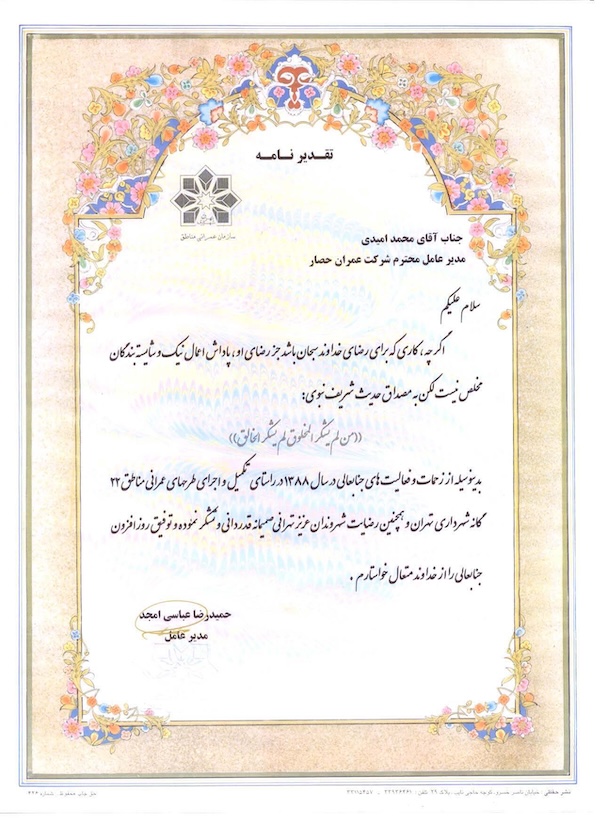 تقدیر نامه
سازمان عمرانی مناطق
جناب آقای محمد امیدی
مدیر عامل محترم شرکت عمران حصار
سلام علیکم
اگر چه، کاری که برای رضای خداوند سبحان باشد جز رضای او، پاداش اعمال نیک و شایسته بندگان
مخلص نیست لکن به مصداق حدیث شریف نبوی:
((من لم یشکر المخلوق لم یشکر الخالق))
بدینوسیله از زحمات و فعالیت های جنابعالی در سال ۱۳۸۸ در راستای تکمیل و اجرای طرحهای عمرانی مناطق ۲۲
گانه شهرداری تهران و همچنین رضایت شهروندان عزیز تهرانی صمیمانه قدردانی و تشکر نموده و توفیق روز افزون
جنابعالی را از خداوند متعال خواستارم .
حمیدرضا عباسی امجد
مدیر عامل
نشر حقیقی : خیابان ناصر خسرو، کوچه حاجی نایب، پلاک ۲۹ تلفن :
حق چاپ محفوظ . شماره ۴۲۶